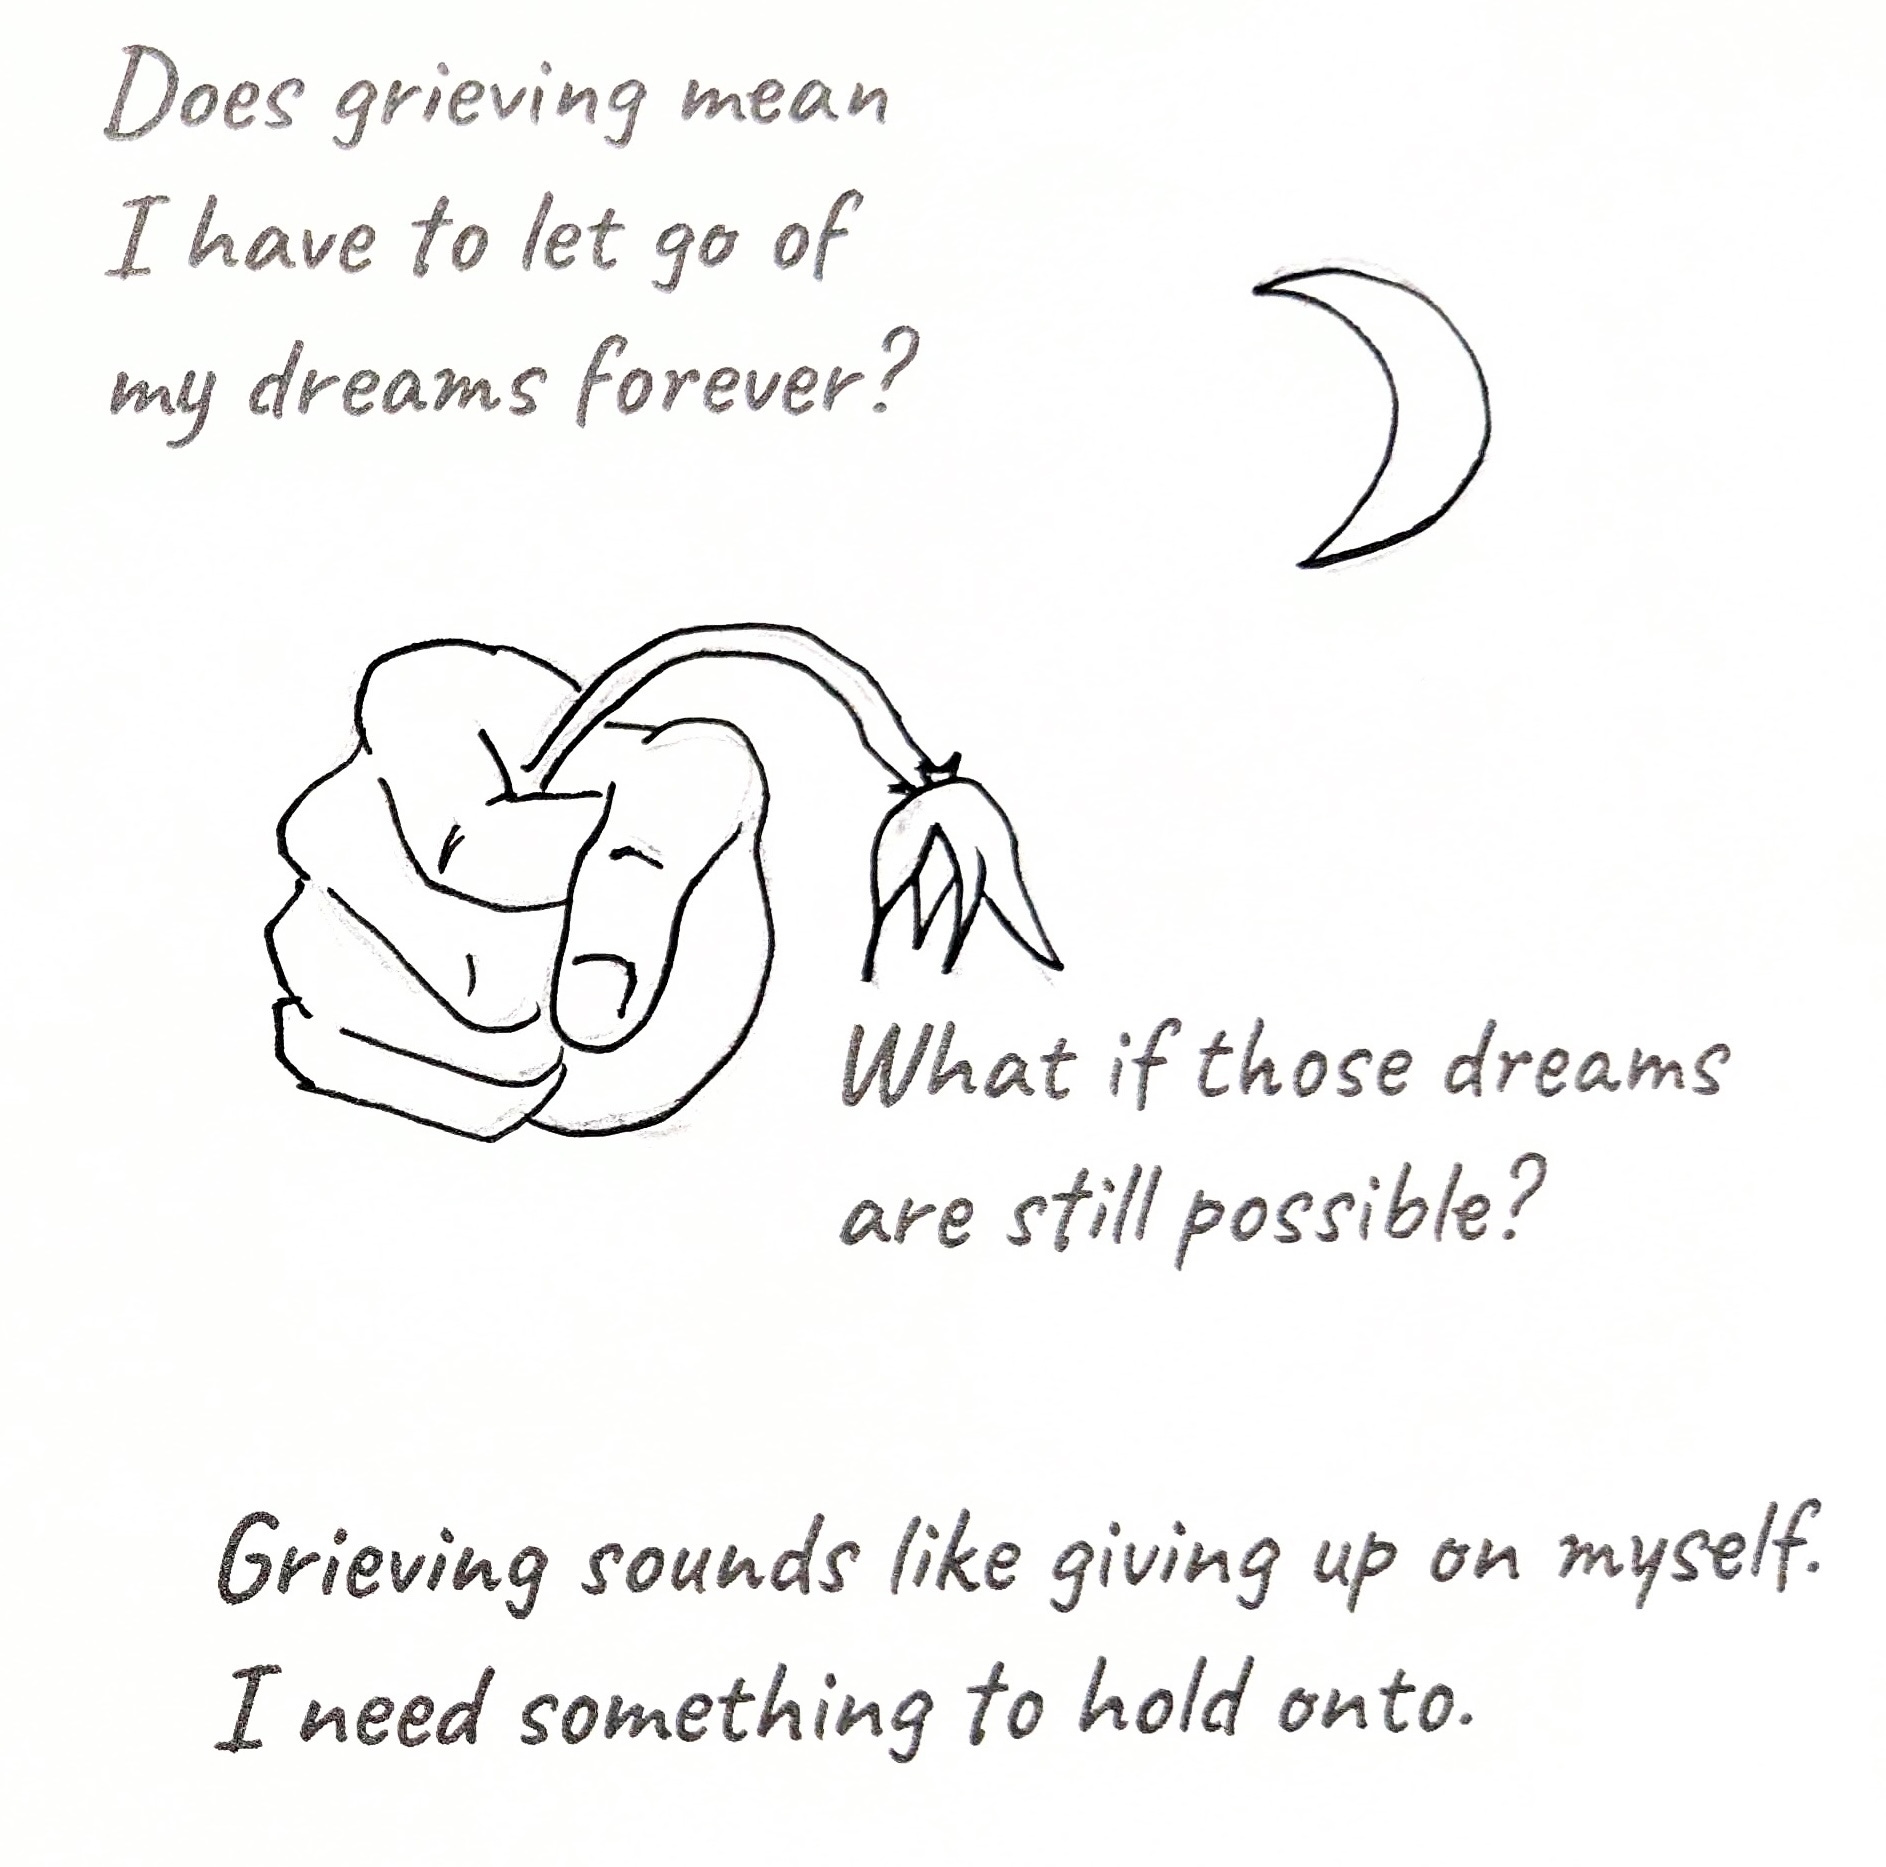 Does grieving mean
I have to let go of
my dreams forever?
What if those dreams
are still possible?
Grieving sounds like giving up on myself.
I need something to hold onto.